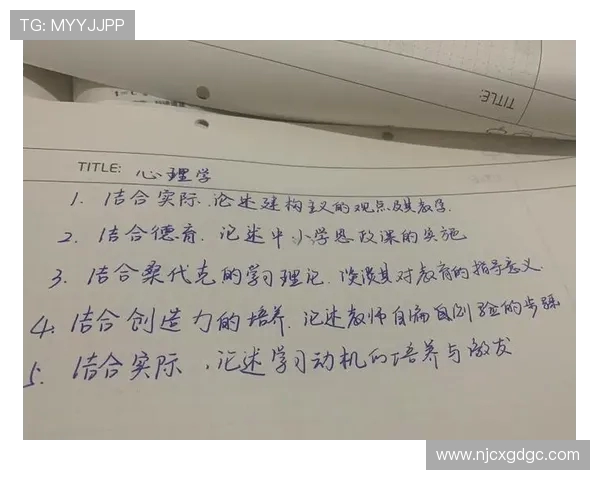 TG: MYYJJPP
TITLE:
TITLE: 心理学
1. 结合实际.论述建构主义的观点及其教学.
2. 结合德育.论述中小学思政课的实施
3. 结合桑代克的学习理论.谈谈其对教育的指导意义
4. 结合创造力的培养.论述教师自编自例验的步骤
5. 结合实际,论述学习动机的培养与激发
www.njcxgdgc.com